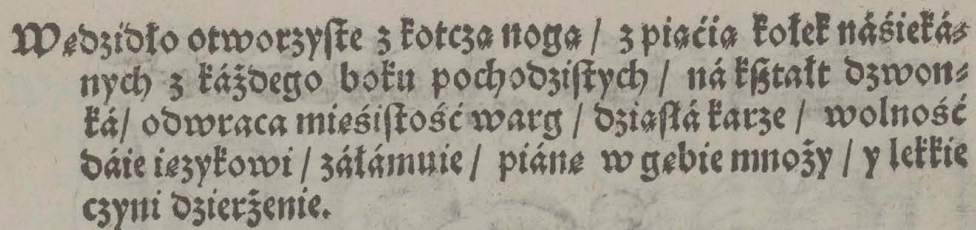 Wędzidło otworzyſte z kotczą nogą / z piąćią kołek náśieká⸗
nych z káżdego boku pochodziſtych / ná kſztałt dzwon⸗
ká/ odwraca mięśiſtość warg / dziąſłá karze / wolność
dáie ięzykowi / záłámuie / piánę w gębie mnoży / y lekkie
czyni dzierżenie.